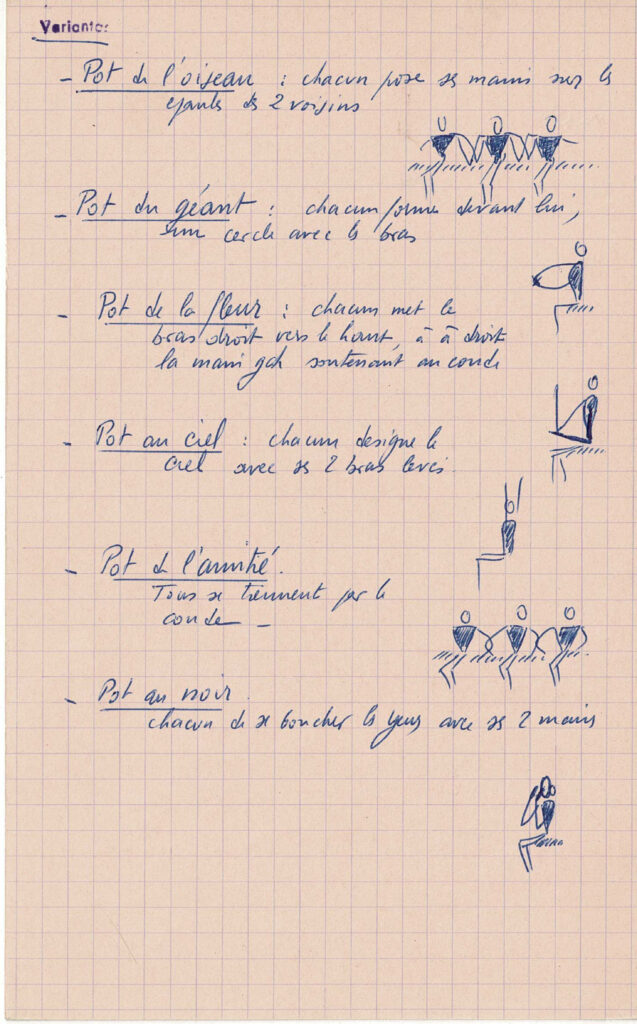 Variantes
- Pot de l'oiseau : chacun pose ses mains sur les
épaules des 2 voisins
- Pot du géant : chacun forme devant lui,
un cercle avec les bras
- Pot de la fleur : chacun met le
bras droit vers le haut, à à droit
la main gch soutenant au coude
- Pot au ciel : chacun designe le
ciel avec ses 2 bras levés.
- Pot de l'amitié.
Tous se tiennent par le
coude -
- Pot au noir.
chacun de se boucher les yeux avec ses 2 mains